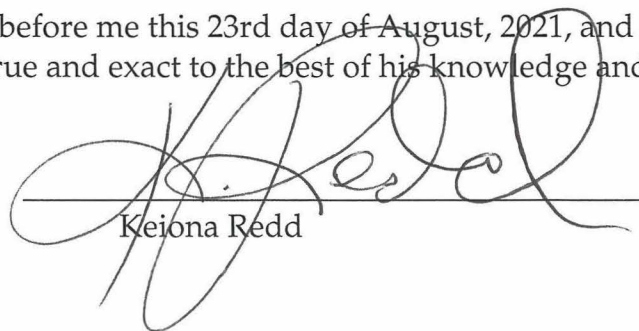 before me this 23rd day of August, 2021, and
rue and exact to the best of his knowledge and
K. Redd
Keiona Redd